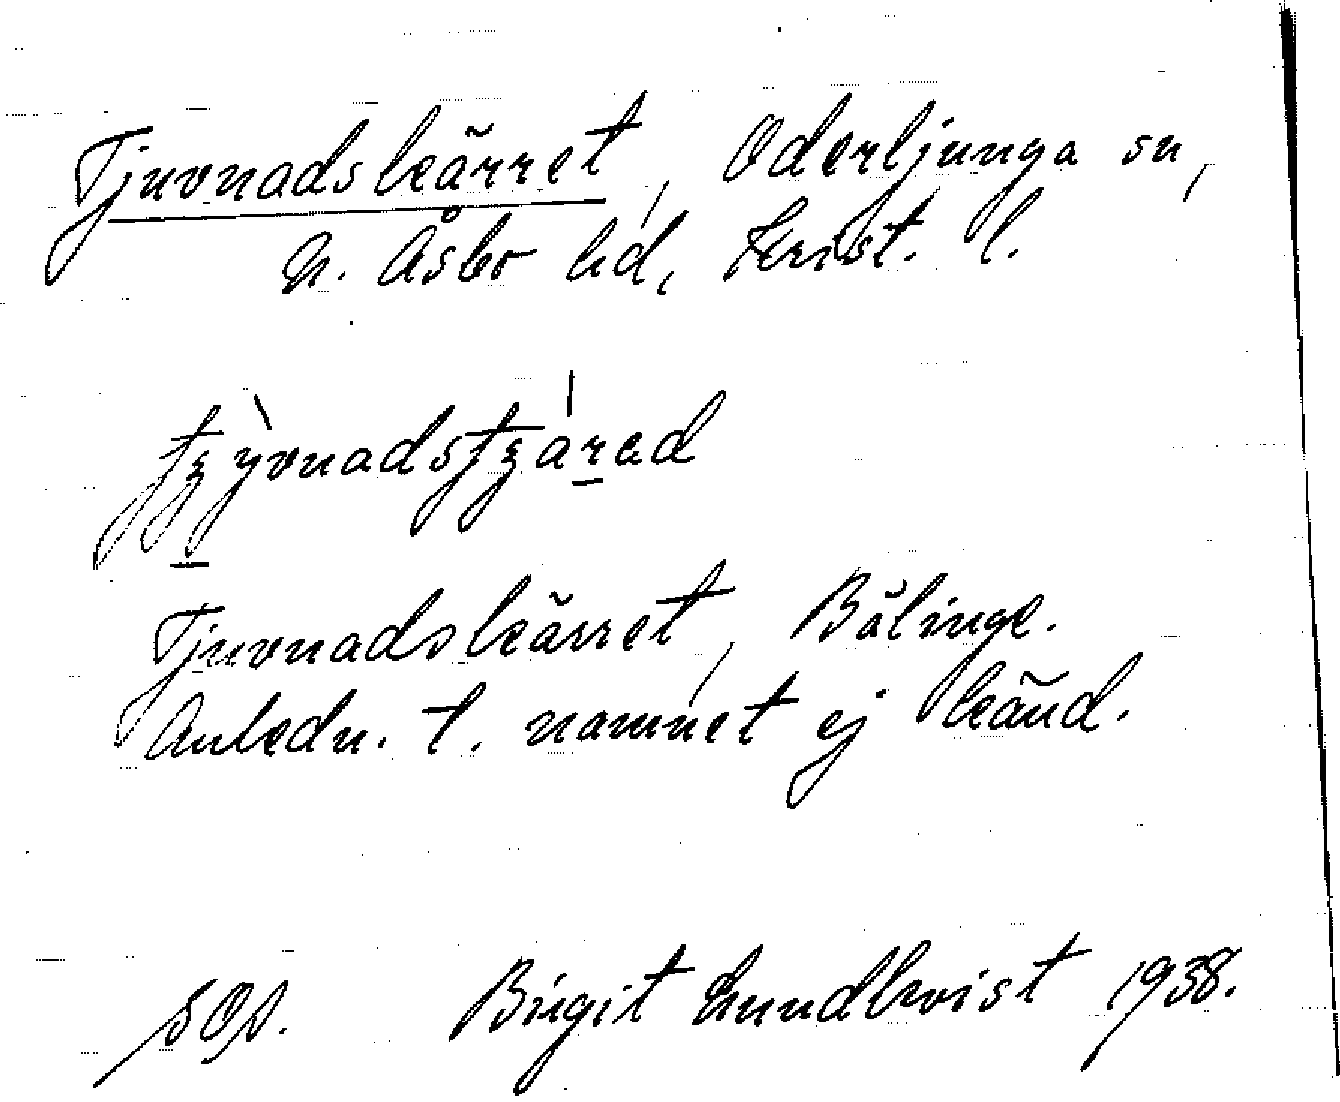 Tjuvnadskärret, Oderljunga sn,
N. Åsbo hd, Krist. l.
Tjuvnadskärret, Bälinge.
Anledn. t. namnet ej känd.
Birgit Lundkvist 1938.